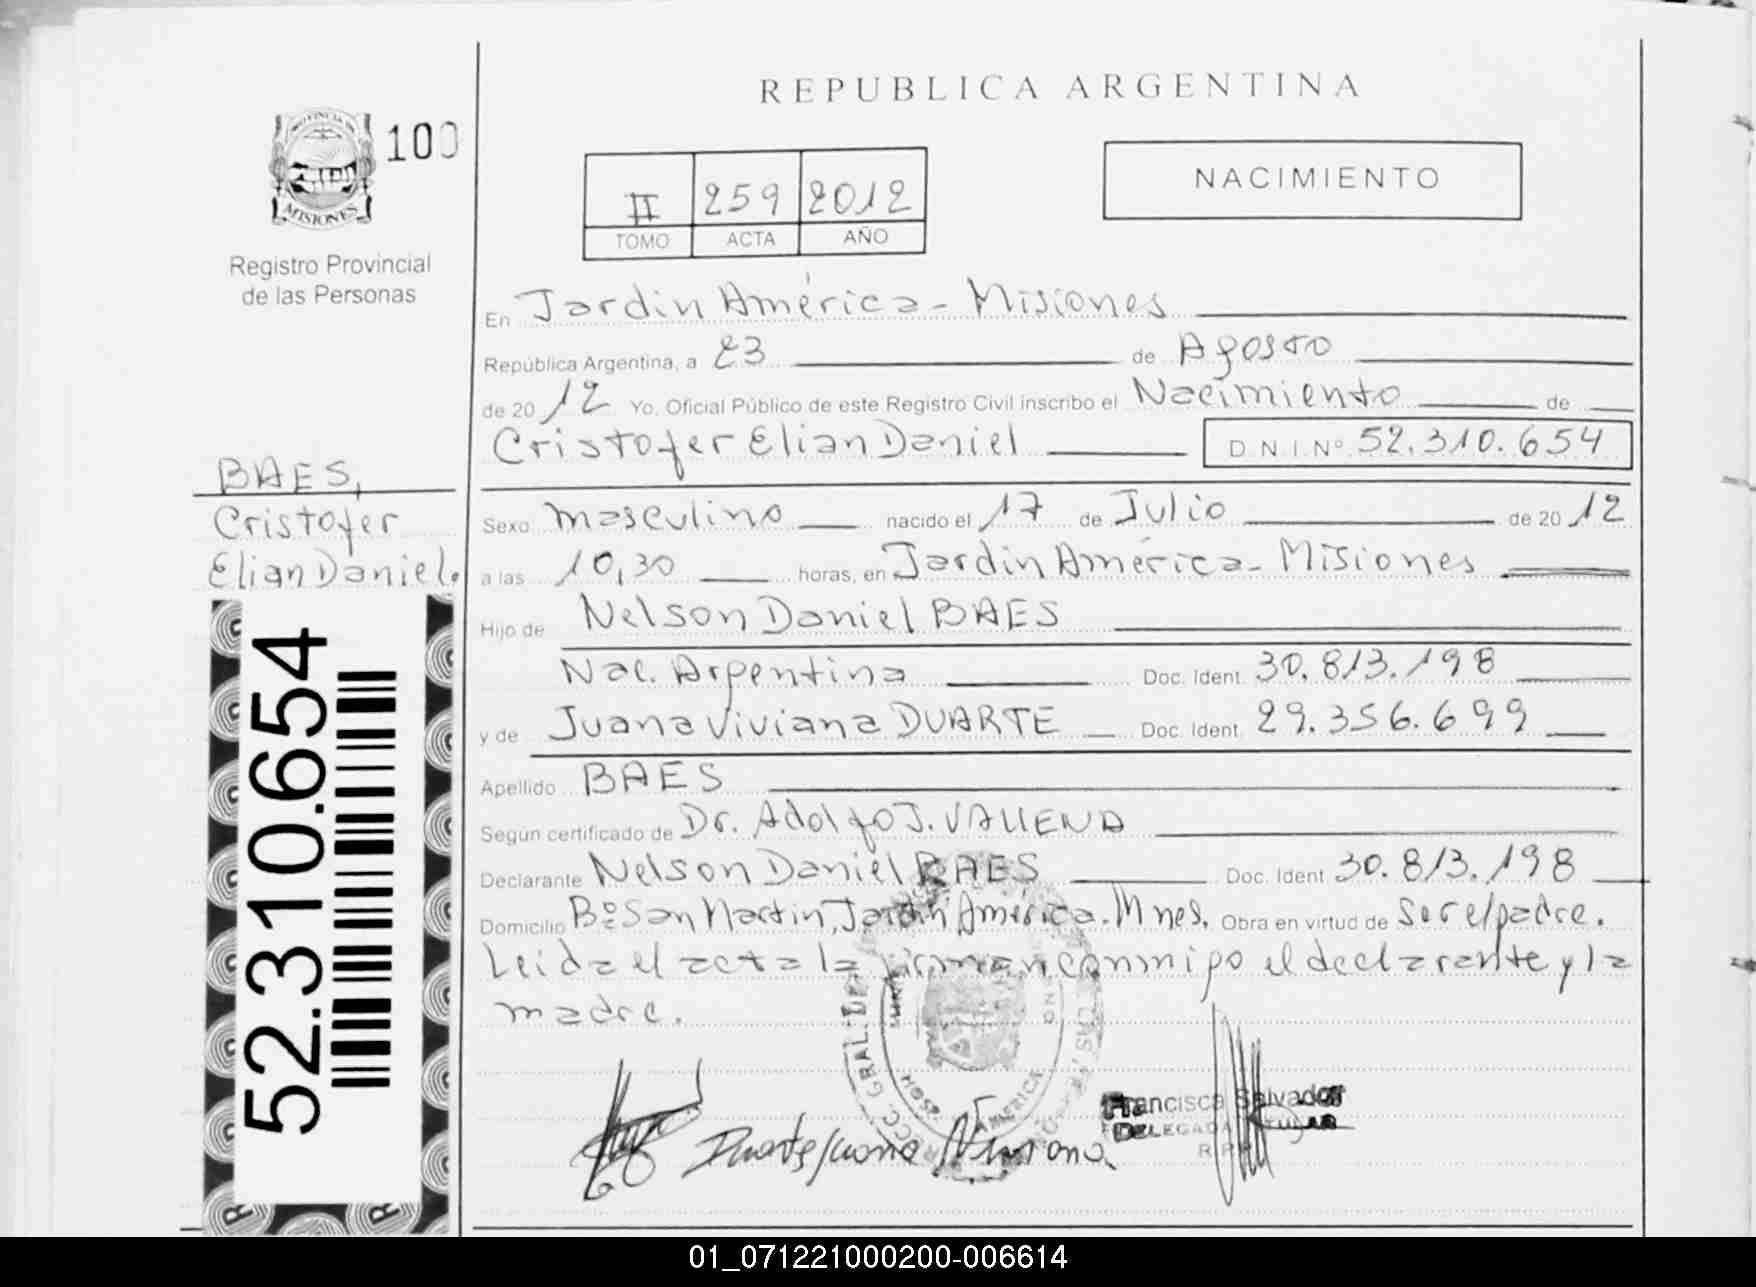 REPUBLICA ARGENTINA
PROVINCIA DE
MISIONES
100
Registro Provincial
de las Personas
II 259 2012
TOMO ACTA AÑO
NACIMIENTO
En Jardin América - Misiones
República Argentina, a 23 de Agosto
de 2012 Yo, Oficial Público de este Registro Civil inscribo el Nacimiento de
Cristofer Elian Daniel D.N.I. Nº 52.310.654
BAES,
Cristofer
Elian Daniel.
Sexo masculino nacido el 17 de Julio de 2012
a las 10,30 horas, en Jardin América - Misiones
Hijo de Nelson Daniel BAES
Nac. Argentina Doc. Ident. 30.813.198
y de Juana Viviana DUARTE Doc. Ident. 29.356.699
Apellido BAES
Según certificado de Dr. Adolfo J. VALLEND
Declarante Nelson Daniel BAES Doc. Ident. 30.813.198
Domicilio Bº San Martin, Jardin América. Mnes. Obra en virtud de Ser el padre.
Leida el acta la firman conmigo el declarante y la
madre.
52.310.654
Duarte Juana Viviana
Francisca Salvador
DELEGADA TITULAR
01_071221000200-006614